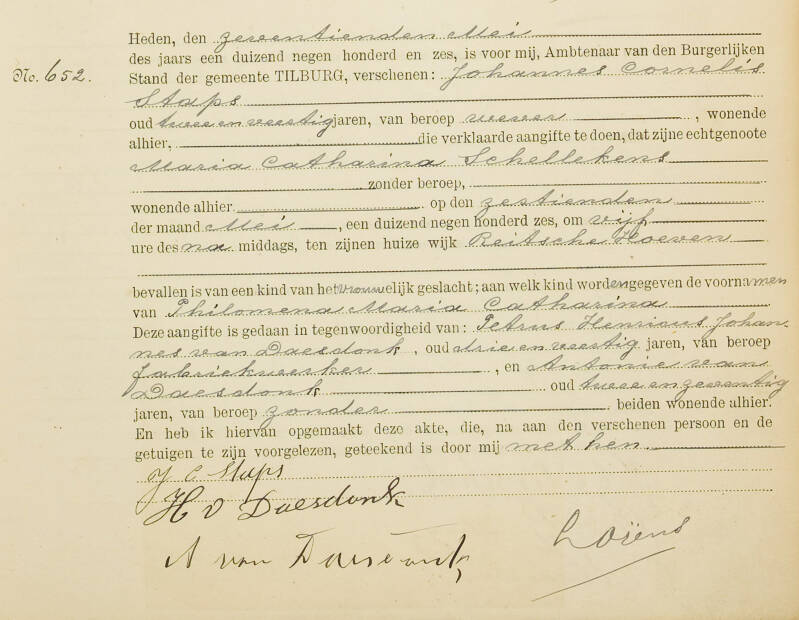 No. 652.
Heden, den zeventienden Mei
des jaars een duizend negen honderd en zes, is voor mij, Ambtenaar van den Burgerlijken
Stand der gemeente TILBURG, verschenen: Johannes Cornelis
Staps
oud twee en veertig jaren, van beroep wever, wonende
alhier, die verklaarde aangifte te doen, dat zijne echtgenoote
Maria Catharina Schellekens
zonder beroep,
wonende alhier op den zestienden
der maand Mei, een duizend negen honderd zes, om vijf
ure des na middags, ten zijnen huize wijk Reitsche Hoeven
bevallen is van een kind van het vrouwelijk geslacht; aan welk kind worden gegeven de voornamen
van Philomena Maria Catharina
Deze aangifte is gedaan in tegenwoordigheid van: Petrus Henricus Johan-
nes van Daesdonk, oud drie en veertig jaren, van beroep
fabriekwerker, en Antonie van
Daesdonk oud twee en zeventig
jaren, van beroep zonder beiden wonende alhier.
En heb ik hiervan opgemaakt deze akte, die, na aan den verschenen persoon en de
getuigen te zijn voorgelezen, geteekend is door mij met hen.
J C Staps
H v Daesdonk
A van Daesdonk